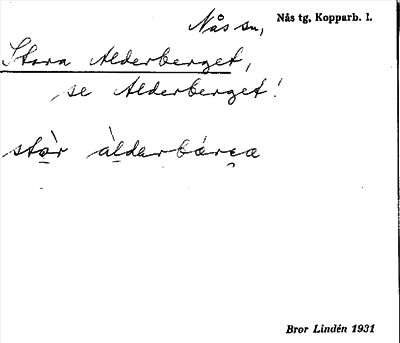 Nås sn, Nås tg, Kopparb. l.
Stora Alderberget,
se Alderberget!
stòr àlderbárea
Bror Lindén 1931